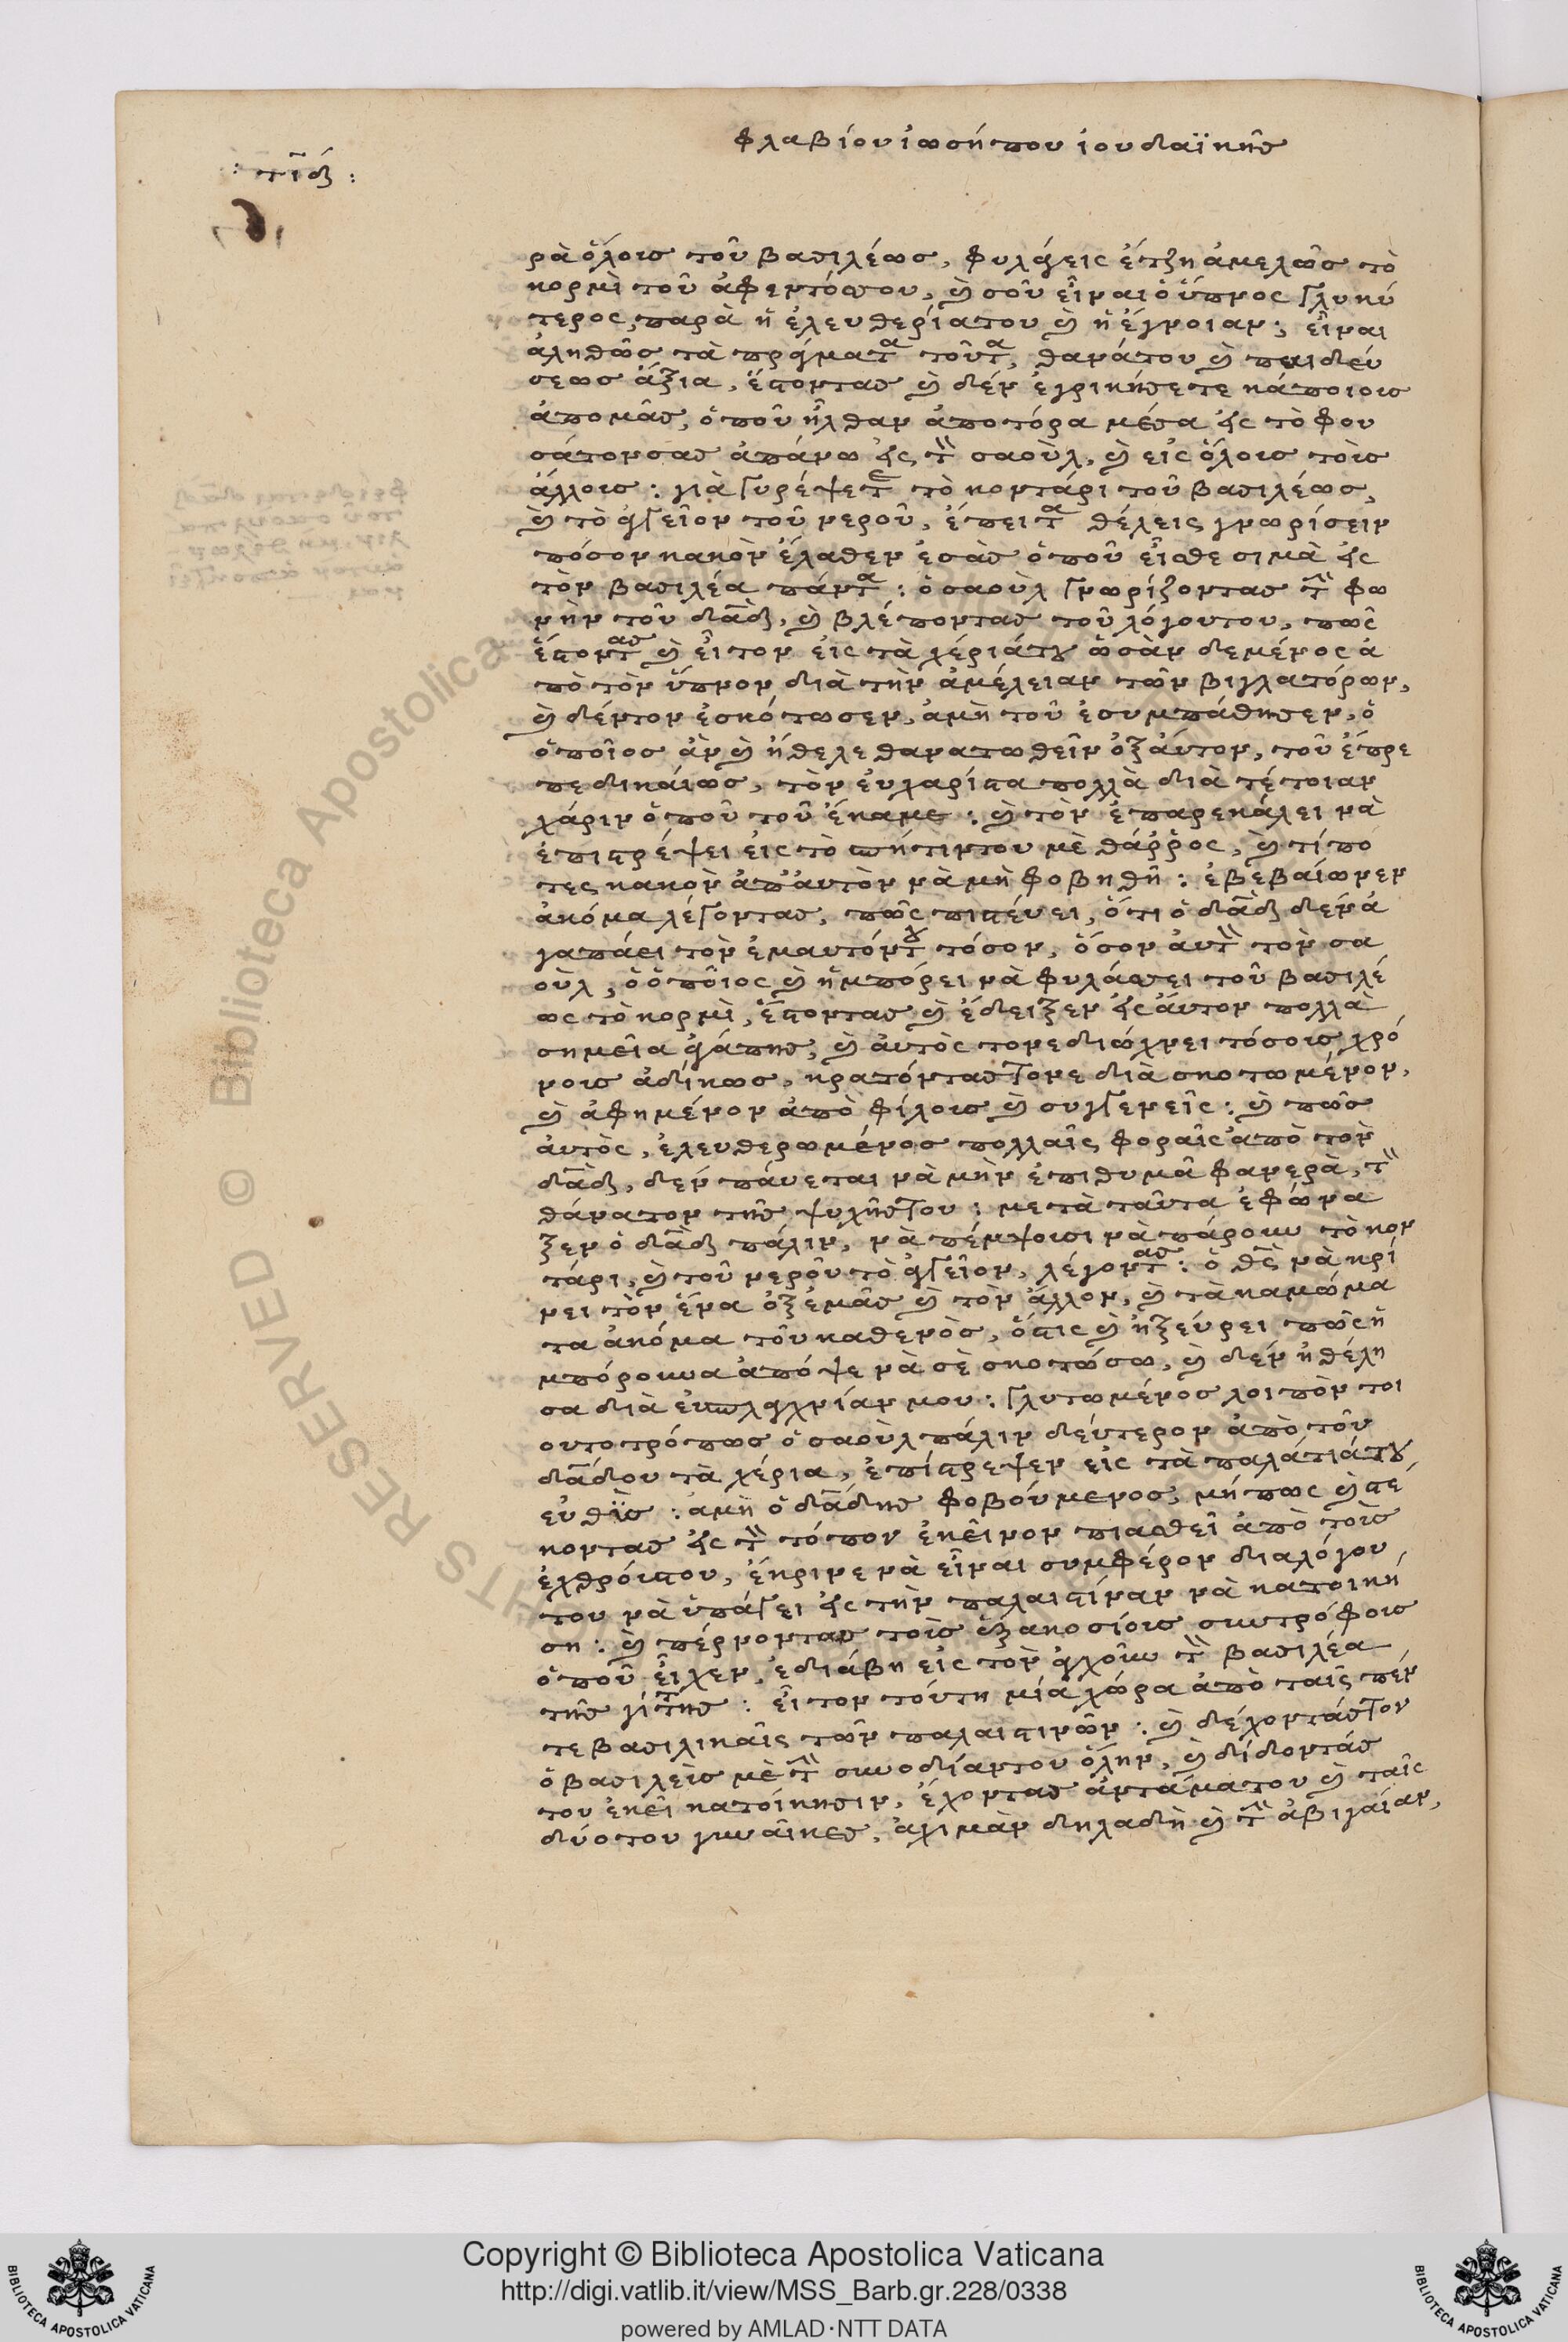 φλαβίου ἰωσήπου ἰουδαϊκῆς
: τιδ :
ρὰ ὅλοις τοῦ βασιλέως, φυλάγεις ἔτζη ἀμελῶς τὸ
κορμὶ τοῦ ἀφεντόσσου, καὶ σοῦ εἶναι ὁ ὕπνος γλυκύ
τερος, παρὰ ἡ ἐλευθερίατου καὶ ἡ ἔγνοιαν; εἶναι
ἀληθῶς τὰ πράγματα τοῦτα, θανάτου καὶ παιδεύ
σεως ἄξια, ἔστοντας καὶ δὲν ἐγρικήσετε κάποιοις
ἀπομᾶς, ὁποῦ ἦλθαν ἀποτόρα μέσα εἰς τὸ φου
σάτονσας ἀπάνω εἰς τὸν σαοὺλ, καὶ εἰς ὅλοις τοὶς
ἄλλοις: γιὰ γυρέψετε τὸ κοντάρι τοῦ βασιλέως,
καὶ τὸ ἀγγεῖον τοῦ νεροῦ, ἔπειτα θέλεις γνωρίσειν
πόσον κακὸν ἔλαθεν ἐσὰς ὁποῦ εἶσθε σιμὰ εἰς
τὸν βασιλέα πάντα: ὁ σαοὺλ γνωρίζοντας τὴν φω
νὴν τοῦ δαδ, καὶ βλέποντας τοῦ λόγουτου, πῶς
ἔστοντας καὶ εἶτον εἰς τὰ χέριάτου ὡσὰν δεμένος ἀ
πὸ τὸν ὕπνον διὰ τὴν ἀμέλειαν τῶν βιγλατόρων,
καὶ δέντον ἐσκότωσεν, ἀμὴ τοῦ ἐσυμπάθησεν, ὁ
ὁποῖος ἂν καὶ ἤθελε θανατωθεῖν ὀξαύτον, τοῦ ἔπρε
πε δικαίως, τὸν ἐυχαρίστα πολλὰ διὰ τέτοιαν
χάριν ὁποῦ τοῦ ἔκαμε: καὶ τὸν ἐπαρεκάλει νὰ
ἐπιστρέψει εἰς τὸ σπήτιντου μὲ θάρρος, καὶ τίπο
τες κακὸν ἀπ' αυτὸν νὰ μὴ φοβηθῆ: ἐβεβαίωνεν
ἀκόμα λέγοντας, πῶς πιστέυει, ὅτι ὁ δαδ δὲν ἀ
γαπάει τὸν ἐμαυτόντου τόσον, ὅσον ἀυτὸν τὸν σα
οὺλ, ὁ ὁποῖος καὶ ἠμπόρει νὰ φυλάσσει τοῦ βασιλέ
ως τὸ κορμὶ, ἔστοντας καὶ ἔδειξεν εἰς ἀύτον πολλὰ
σημεῖα ἀγάπης, καὶ ἀυτὸς τονε διώχνει τόσοις χρό
νοις ἀδίκως, κρατόντας τονε διὰ σκοτωμένον,
καὶ ἀφημένον ἀπὸ φίλοις καὶ συγγενεῖς: καὶ πῶς
ἀυτὸς, ἐλευθερωμένος πολλαῖς φοραῖς ἀπὸ τὸν
δαδ, δὲν πάυεται νὰ μὴν ἐπιθυμᾶ φανερὰ, τὸν
θάνατον τῆς ψυχῆς του: μετὰ ταῦτα ἐφώνα
ξεν ὁ δαδ πάλιν, νὰ πέμψουσι νὰ πάρουν τὸ κον
τάρι, καὶ τοῦ νεροῦ τὸ ἀγγεῖον, λέγοντας: ὁ θεὸς νὰ κρί
νει τὸν ἕνα ὀξεμᾶς καὶ τὸν ἄλλον, καὶ τὰ καμώμα
τα ἀκόμα τοῦ καθενὸς, ὅστις καὶ ἠξεύρει πῶς ἠ
μπόρουνα ἀπόψε νὰ σὲ σκοτώσω, καὶ δὲν ἠθέλη
σα διὰ ἐυσπλαχνίαν μου: γλυτωμένος λοιπὸν τοι
ουτοτρόπως ὁ σαοὺλ πάλιν δεύτερον ἀπὸ τοῦ
δάδου τὰ χέρια, ἐπίστρεψεν εἰς τὰ παλάτιάτου
εὐθὺς: ἀμὴ ὁ δάδης φοβούμενος, μήπως καὶ στέ
κοντας εἰς τὸν τόπον ἐκεῖνον πιασθεῖ ἀπὸ τοὶς
ἐχθρόυστου, ἔκρινε νὰ εἶναι συμφέρον διαλόγου
του νὰ ὑπάγει εἰς τὴν παλαιστίναν νὰ κατοική
ση: καὶ πέρνοντας τοὶς ἑξακοσίοις συντρόφοις
ὁποῦ εἶχεν, ἐδιάβη εἰς τὸν ἀγχοῦν τὸν βασιλέα
τῆς γίττης: εἶτον τούτη μία χώρα ἀπὸ ταῖς πέν
τε βασιλικαῖς τῶν παλαιστινῶν: καὶ δέχοντάς τον
ὁ βασιλεὺς μὲ τὴν συνοδίαντου ὅλην, καὶ δίδοντάς
του ἐκεῖ κατοίκησιν, ἔχοντας ἀντάματου καὶ ταῖς
δύο του γυναῖκες, ἀχιμὰν δηλαδὴ καὶ τὴν ἀβιγαίαν,
Copyright © Biblioteca Apostolica Vaticana
http://digi.vatlib.it/view/MSS_Barb.gr.228/0338
powered by AMLAD·NTT DATA
BIBLIOTECA APOSTOLICA VATICANA
BIBLIOTECA APOSTOLICA VATICANA
Biblioteca Apostolica
© RESERVED